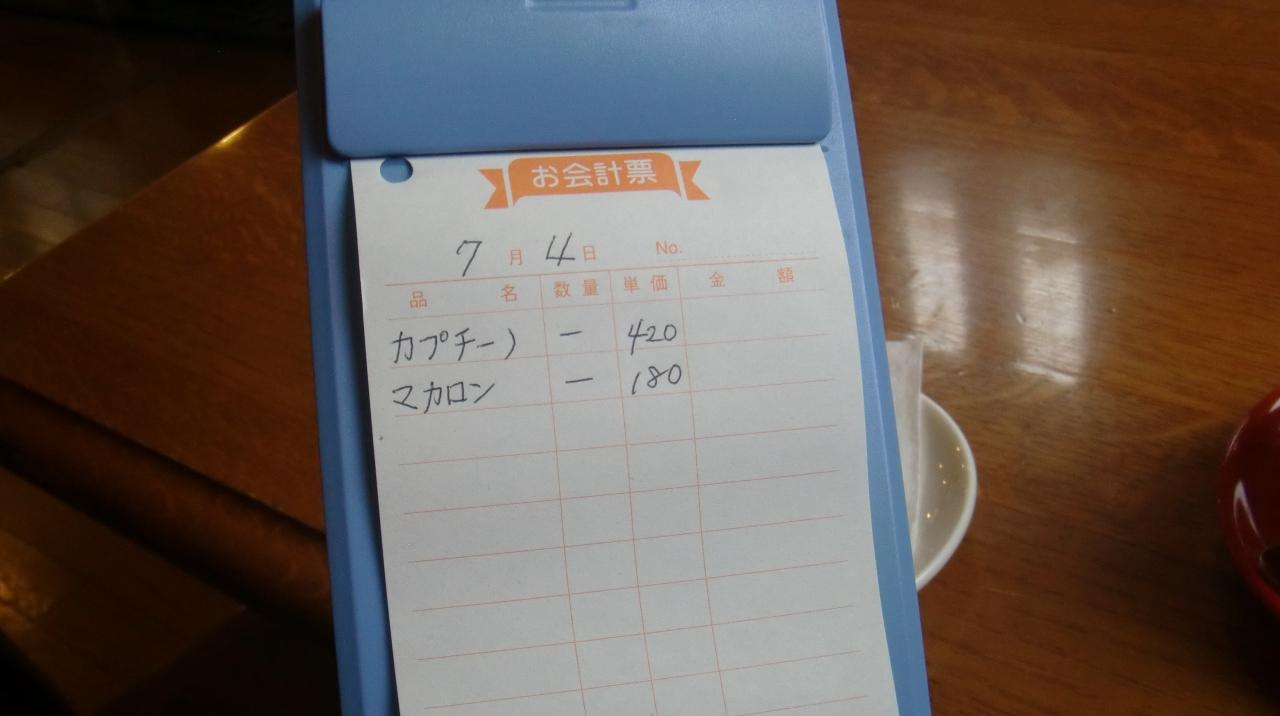 お会計票
7月4日 No.
品名 数量 単価 金額
カプチーノ 一 420
マカロン 一 180